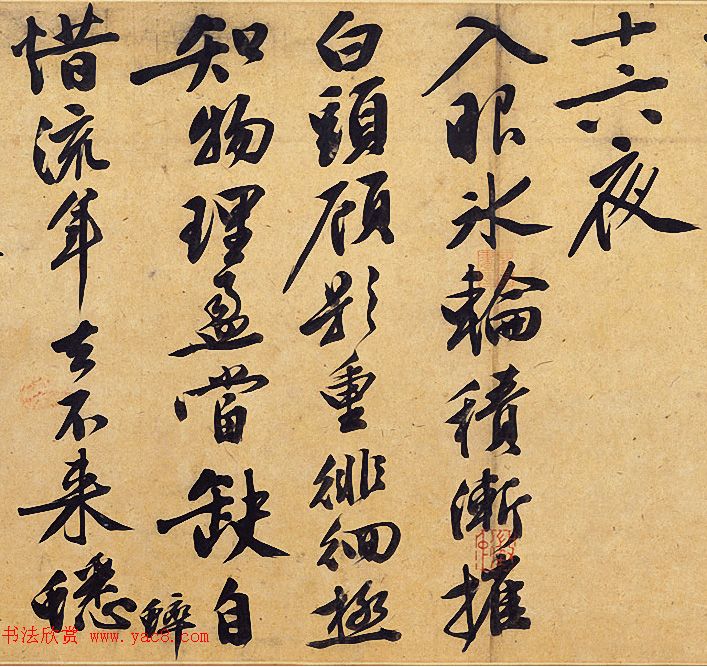 十六夜
入眼氷輪積漸摧
白頭顧影重徘徊極
知物理盈當缺自
惜流年去不来蟋蟀
书法欣赏 www.yac8.com